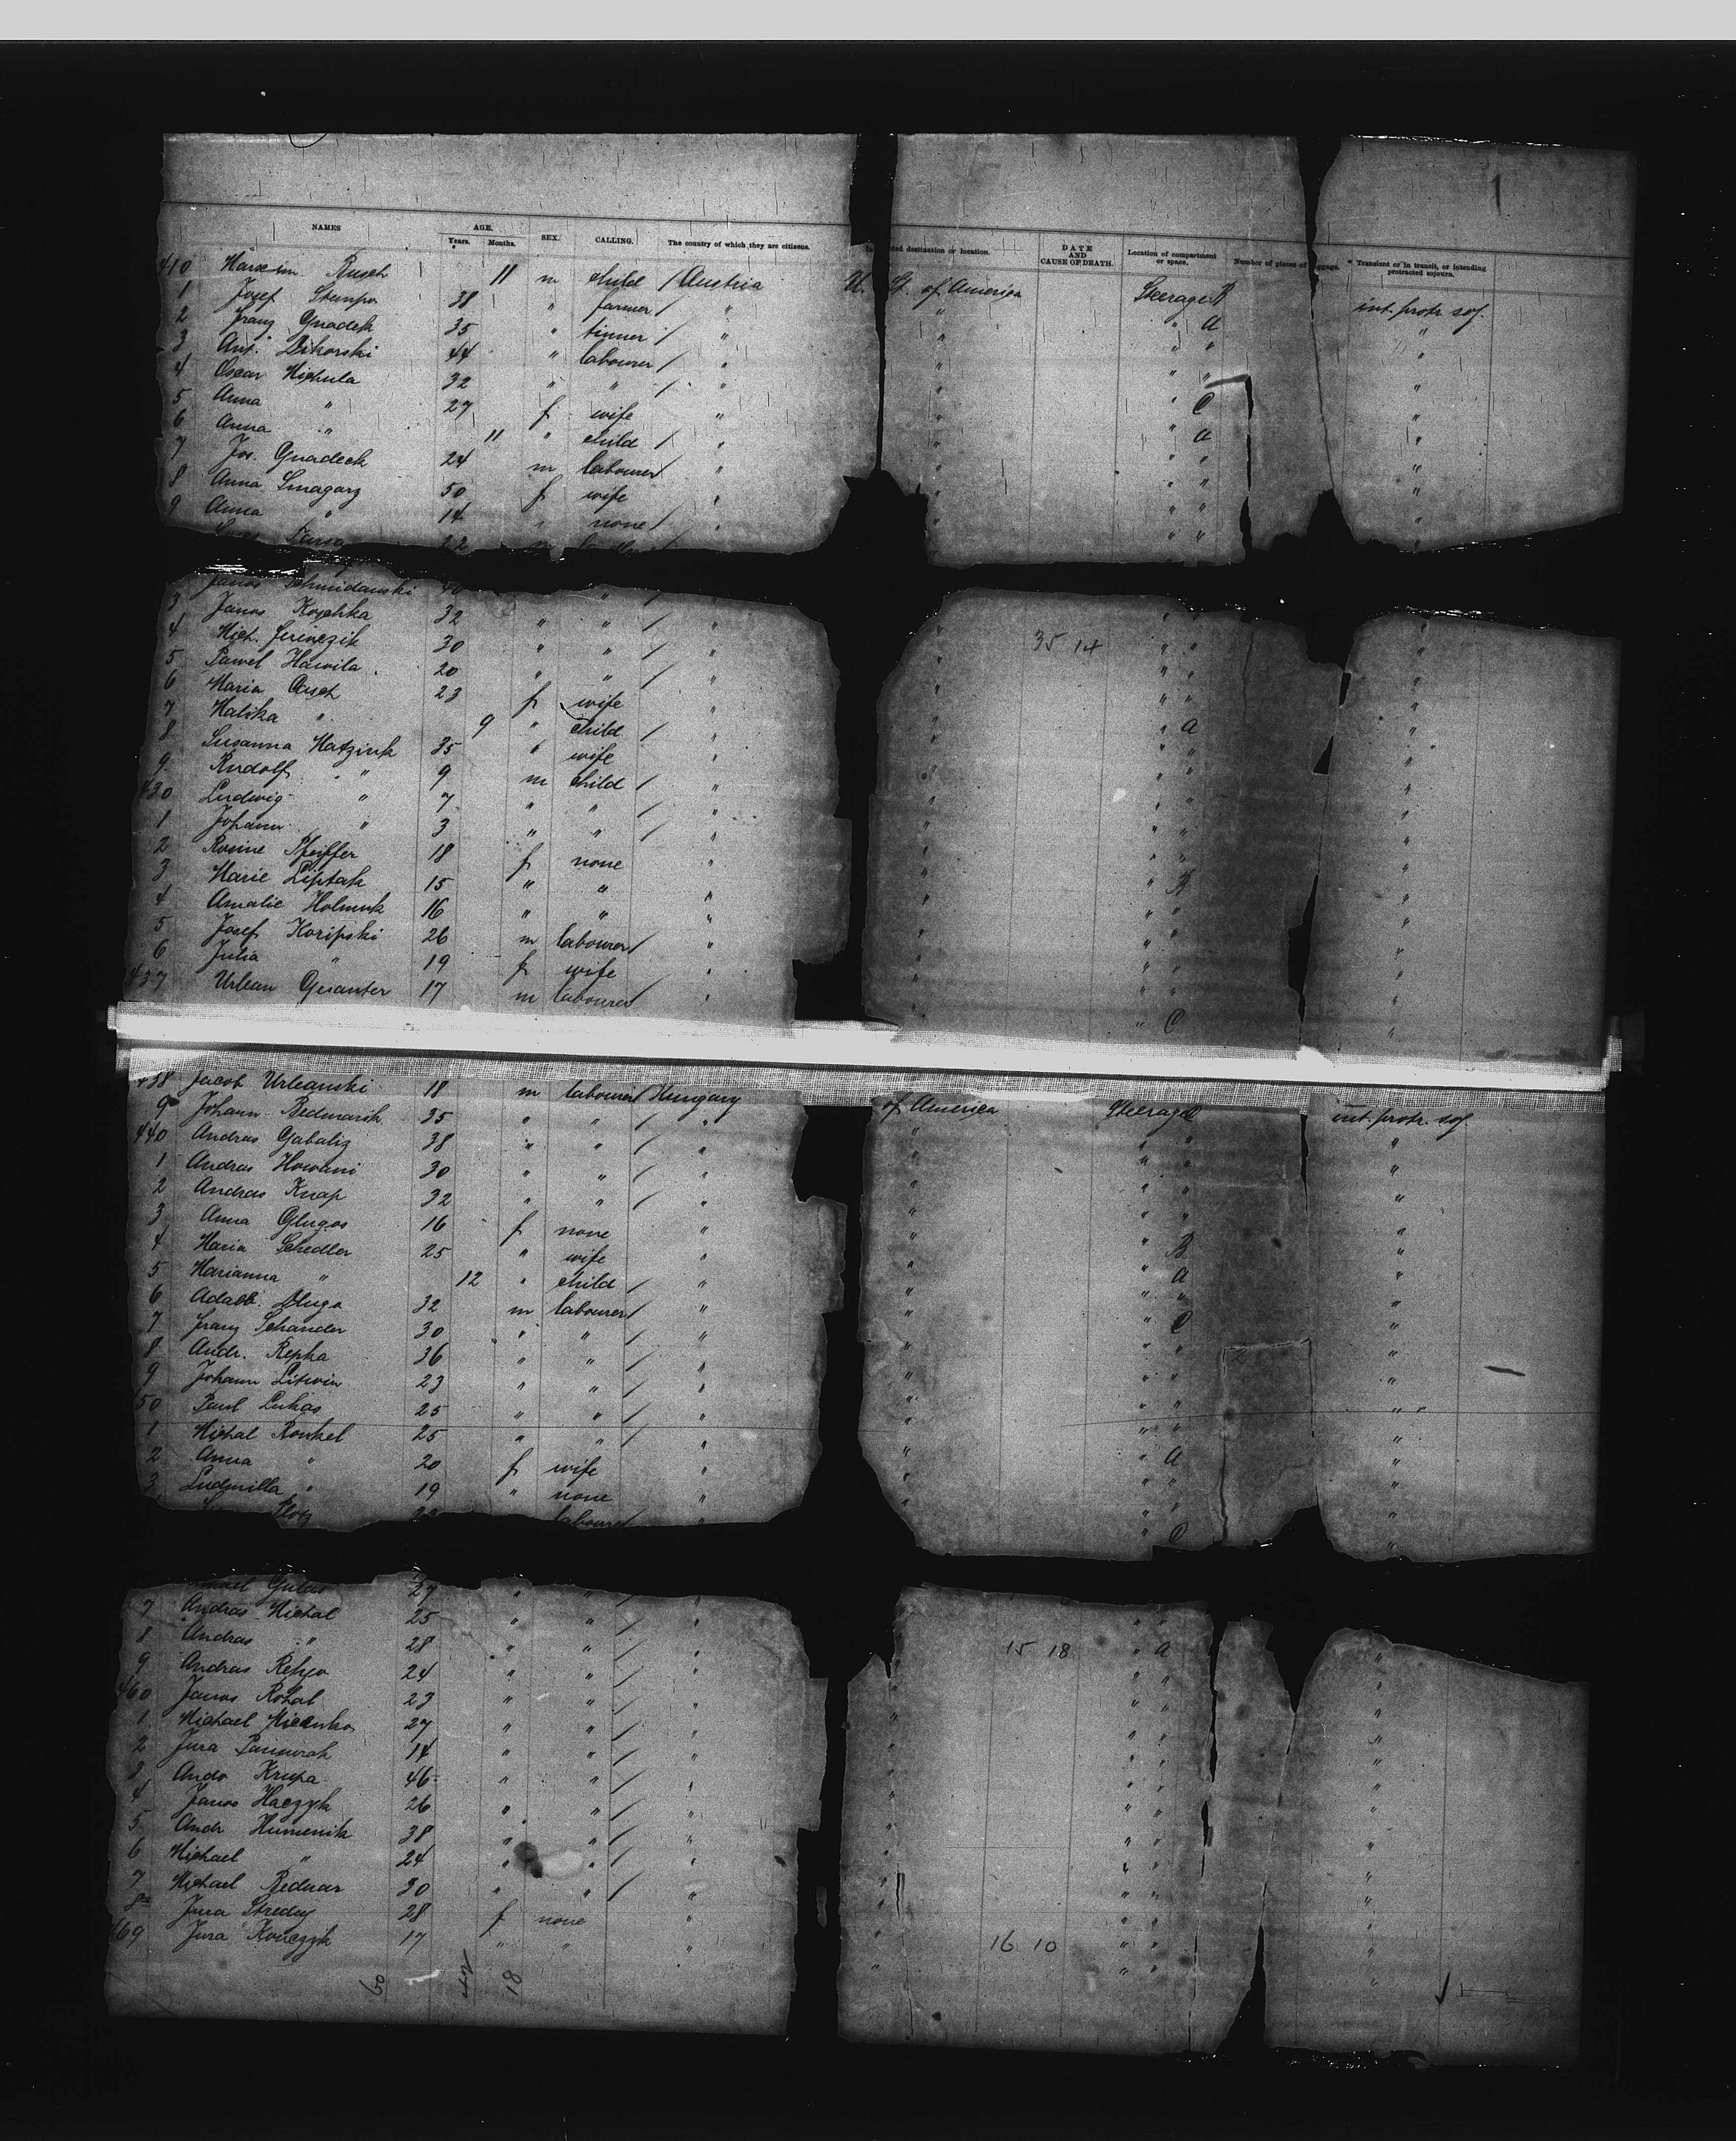 NAMES AGE. Years. Months. SEX. CALLING. The country of which they are citizens. ded destination or location. DATE AND CAUSE OF DEATH. Location of compartment or space. Number of pieces of Transient or in transit, or intending protracted sojourn.
410 Rusch 11 m child / Austria U. St. of America Steerage B int. protr. soj.
1 Josef Stempa 38 " farmer / " " " A "
2 Franz Gnadek 35 " tinner / " " " " "
3 Ant. Sikorski 44 " labourer / " " " "
4 Oscar Michula 32 " " / " " " C "
5 Anna " 27 f wife " " " A "
6 Anna " 11 " child / " " " " "
7 Jos. Gnadeck 24 m labourer / " " " " "
8 Anna Smagarz 50 f wife " " " " "
9 Anna " 14 " none / " " " " "
22
Janos Schmidanski " / "
3 Janos Koschka 32 " " / " " " " "
4 Mich. Ferinczik 30 " " / " " 35 14 " " "
5 Pawel Hawila 20 " " / " " " " "
6 Maria 23 f wife " " " " "
7 Malika " 9 " child / " " " A "
8 Susanna Matzink 35 " wife " " " " "
9 Rudolf " 9 m child / " " " " "
430 Ludwig " 7 " " / " " " " "
1 Johann " 3 " " / " " " " "
2 Rosine Pfeiffer 18 f none " " " B "
3 Marie Liptak 15 " " " " " " "
4 Amalie Holmuk 16 " " " " " " "
5 Josef Koripski 26 m labourer / " " " " "
6 Julia " 19 f wife " " " " "
437 Urban Gesanter 17 m labourer / " " C "
438 Jacob Urbanski 18 m labourer / Hungary of America Steerage int. protr. soj.
9 Johann Bedmarsk 35 " " / " " " " "
440 Andras Gabaliz 38 " " / " " " " "
1 Andras Howani 30 " " / " " " " "
2 Andras Knap 32 " " / " " " " "
3 Anna Glugos 16 f none " " " B "
4 Maria Schedler 25 " wife " " " A "
5 Marianna " 12 " child / " " " " "
6 Adalb. Dluga 32 m labourer / " " " C "
7 Franz Schander 30 " " / " " " " "
8 Andr. Repka 36 " " / " " " " "
9 Johann Litwin 23 " " / " " " " "
50 Paul Lukas 25 " " / " " " " "
1 Michal Ronkel 25 " " / " " " A "
2 Anna " 20 f wife " " " " "
3 Ludmilla " 19 " none " " " " "
labourer " C "
Gulas 27 " " / "
7 Andras Michal 25 " " / " " " " "
8 Andras " 28 " " / " " 15 18 " A "
9 Andras Rehyo 24 " " / " " " " "
460 Janos Rohal 23 " " / " " " " "
1 Michael 27 " " / " " " " "
2 Jura 14 " " / " " " " "
3 Ando Krupa 46 " " / " " " " "
4 Janos Haczyk 26 " " / " " " " "
5 Andr Humenik 38 " " / " " " " "
6 Michael " 24 " " / " " " " "
7 Michael Bednar 30 " " / " " " " "
8 Jura Stredny 28 f none " " " " "
469 Jura Konczyk 17 " " " " 16 10 " " "
18